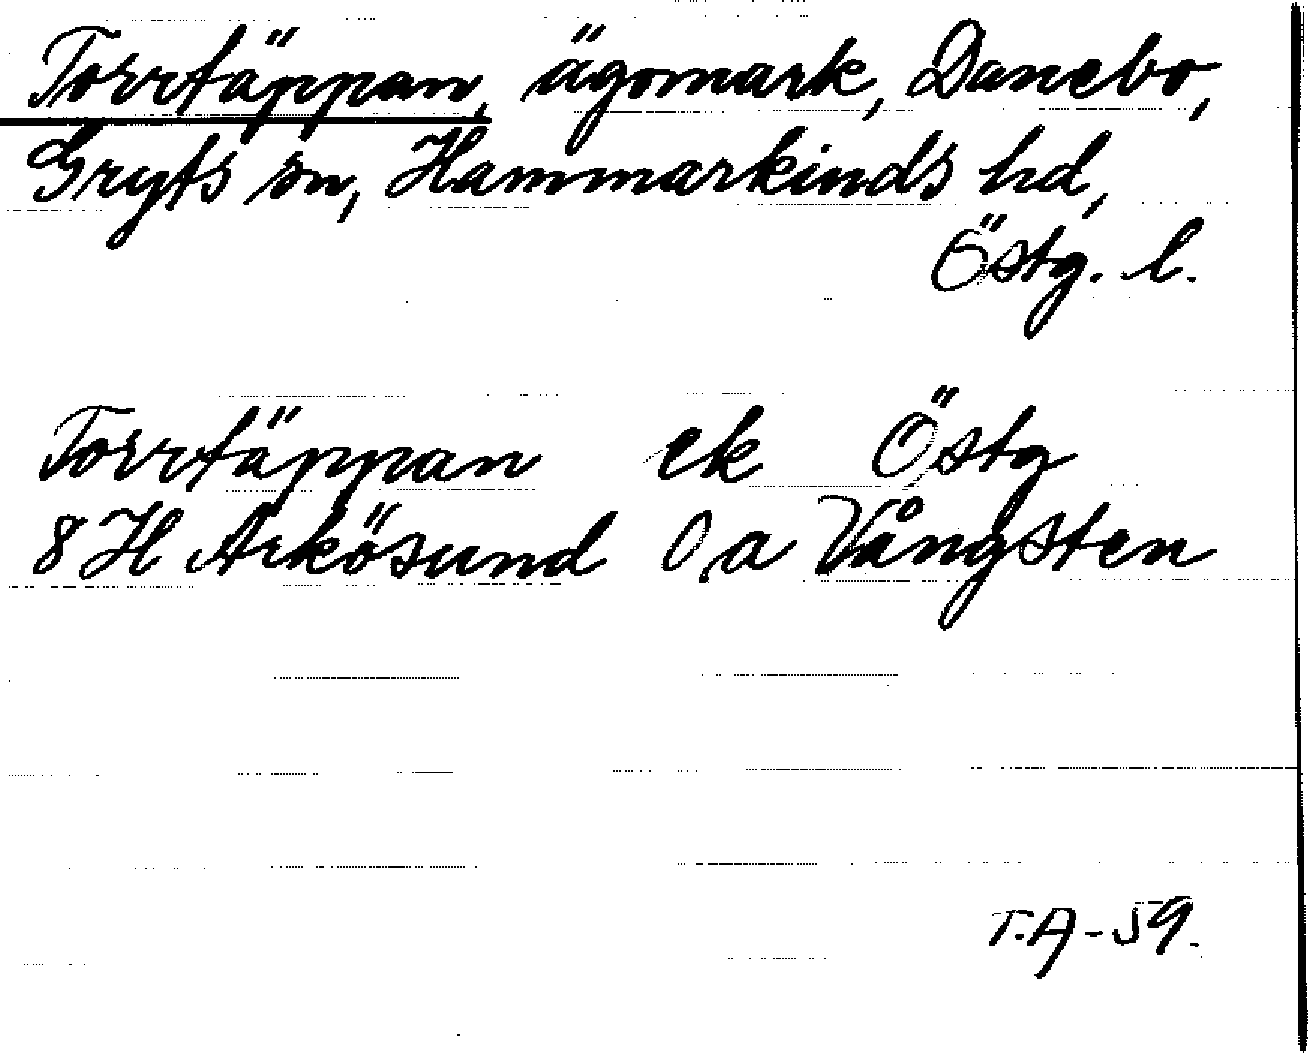 Torrtäppan, ägomark, Danebo,
Gryts sn, Hammarkinds hd,
Östg. l.
Torrtäppan ek Östg
8 H Arkösund 0,a Vångsten
T.A-59.